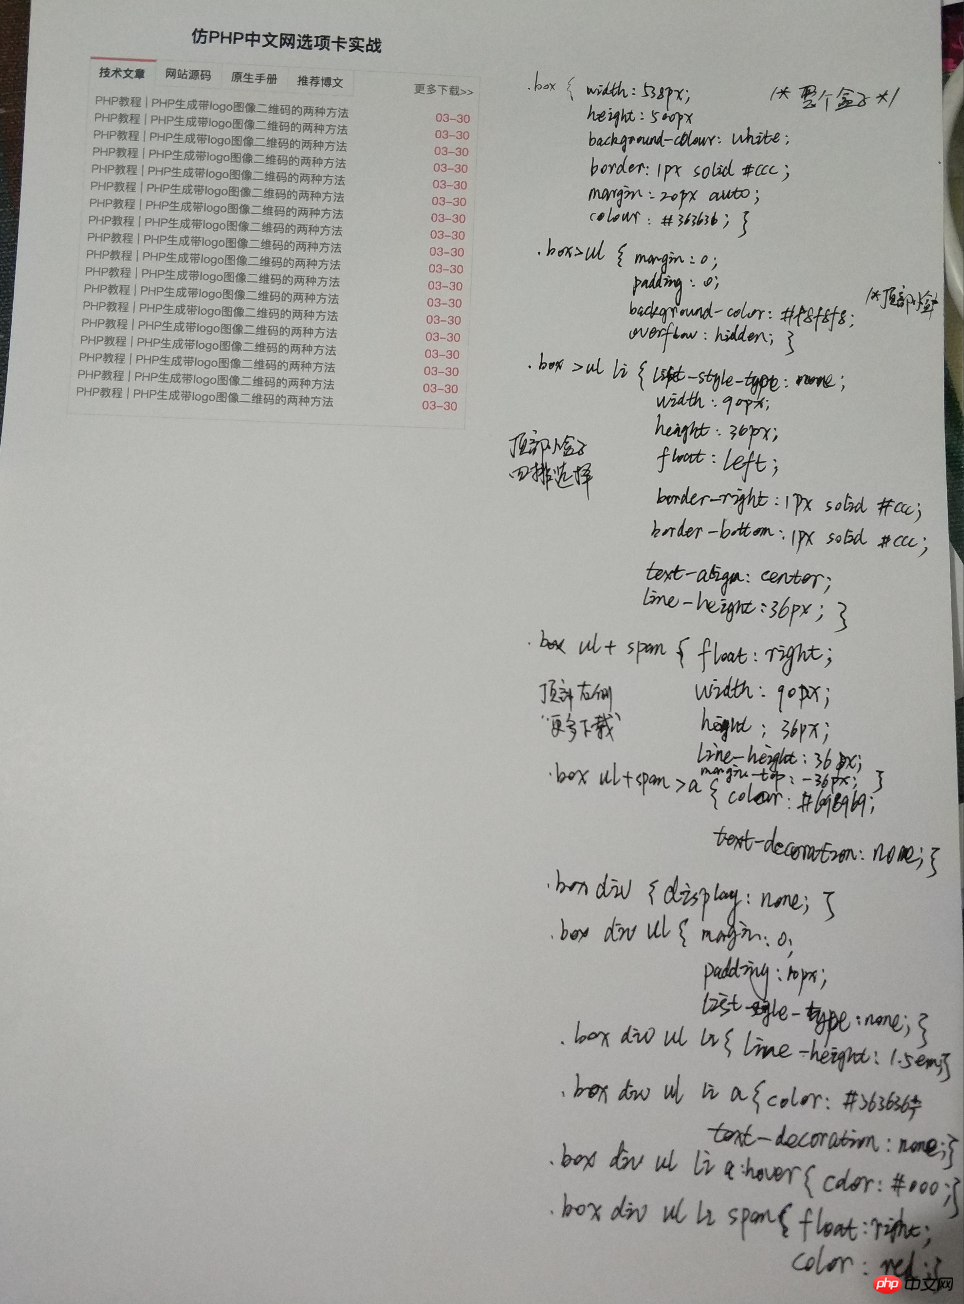 仿PHP中文网选项卡实战
技术文章 网站源码 原生手册 推荐博文 更多下载>>
PHP教程 | PHP生成带logo图像二维码的两种方法 03-30
PHP教程 | PHP生成带logo图像二维码的两种方法 03-30
PHP教程 | PHP生成带logo图像二维码的两种方法 03-30
PHP教程 | PHP生成带logo图像二维码的两种方法 03-30
PHP教程 | PHP生成带logo图像二维码的两种方法 03-30
PHP教程 | PHP生成带logo图像二维码的两种方法 03-30
PHP教程 | PHP生成带logo图像二维码的两种方法 03-30
PHP教程 | PHP生成带logo图像二维码的两种方法 03-30
PHP教程 | PHP生成带logo图像二维码的两种方法 03-30
PHP教程 | PHP生成带logo图像二维码的两种方法 03-30
PHP教程 | PHP生成带logo图像二维码的两种方法 03-30
PHP教程 | PHP生成带logo图像二维码的两种方法 03-30
PHP教程 | PHP生成带logo图像二维码的两种方法 03-30
PHP教程 | PHP生成带logo图像二维码的两种方法 03-30
PHP教程 | PHP生成带logo图像二维码的两种方法 03-30
PHP教程 | PHP生成带logo图像二维码的两种方法 03-30
PHP教程 | PHP生成带logo图像二维码的两种方法 03-30
PHP教程 | PHP生成带logo图像二维码的两种方法 03-30
.box { width: 538px; /* 整个盒子 */
height: 500px
background-colour: white;
border: 1px solid #ccc;
margin: 20px auto;
colour: #363636; }
.box>ul { margin: 0;
padding: 0; /*顶部小盒
background-color: #f8f8f8;
overflow: hidden; }
.box >ul li { list-style-type: none;
width: 90px;
height: 36px;
顶部小盒子
float: left;
四排选择
border-right: 1px solid #ccc;
border-bottom: 1px solid #ccc;
text-align: center;
line-height: 36px; }
.box ul+ span { float: right;
顶部右侧 width: 90px;
"更多下载" height: 36px;
line-height: 36px;
margin-top: -36px; }
.box ul+span>a { colour: #696969;
text-decoration: none; }
.box div { display: none; }
.box div ul { margin: 0;
padding: 10px;
list-style-type: none; }
.box div ul li { line-height: 1.5em; }
.box div ul li a { color: #363636;
text-decoration: none; }
.box div ul li a:hover { color: #000; }
.box div ul li span { float: right;
color: red; }
php 中文网